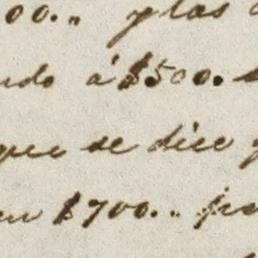 00.. y las
ndo á $500.
que se dice
en $700..